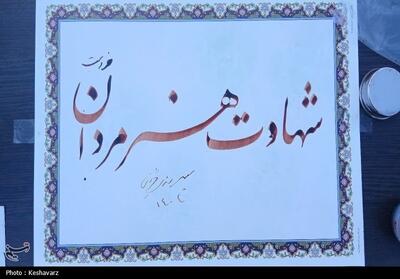 شهادت هنر مردان خداست
۱۴۰۰
Photo : Keshavarz